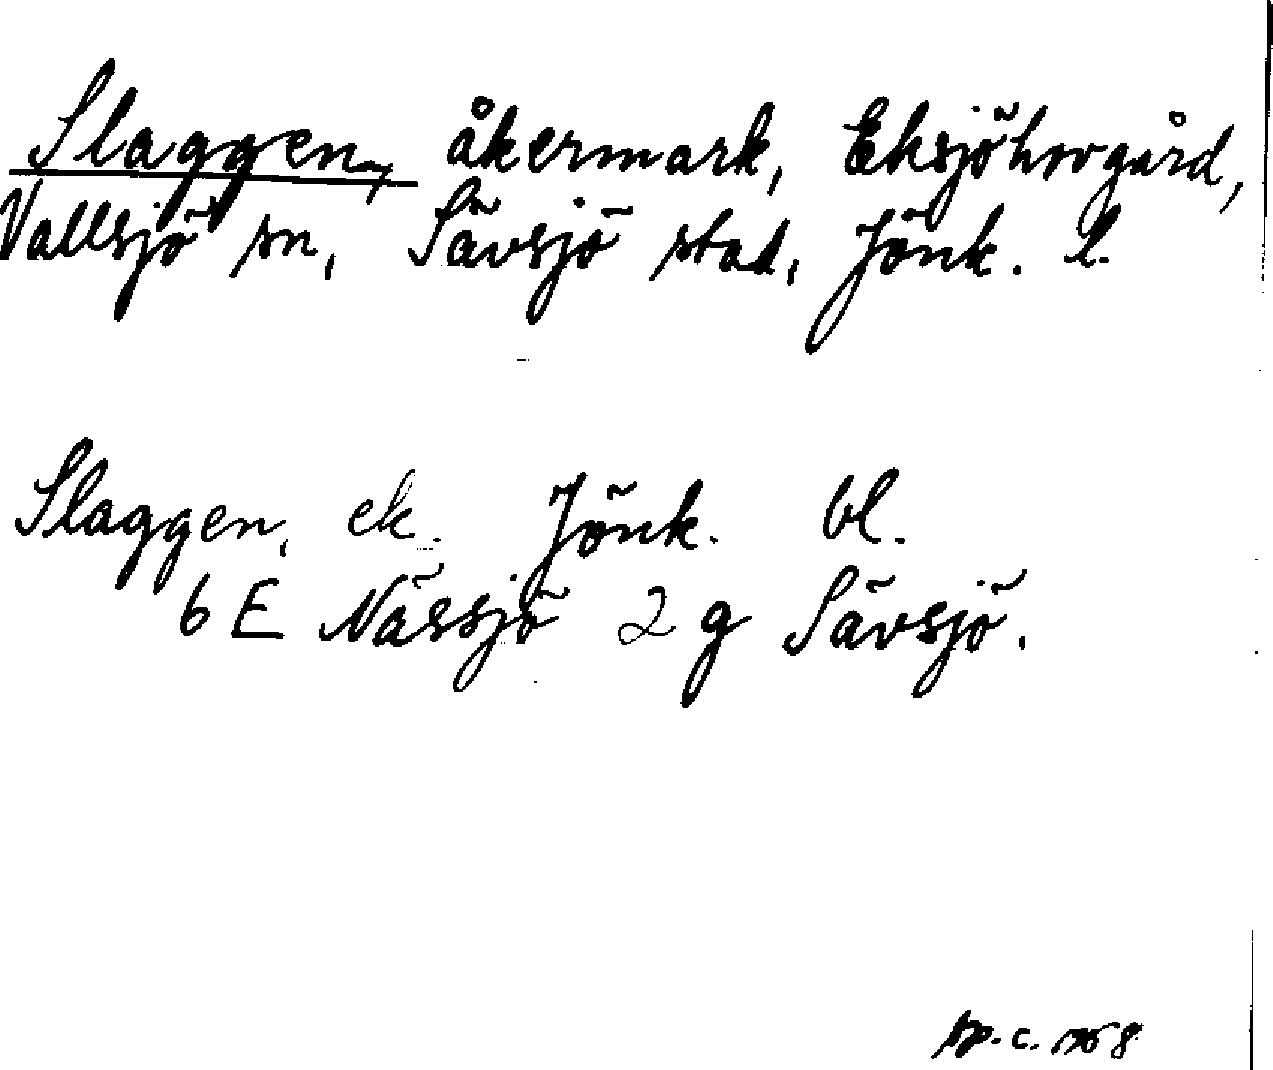 Slaggen, åkermark, Eksjöhovgård,
Vallsjö sn, Sävsjö stad, Jönk. l.
Slaggen, ek. Jönk. bl.
6 E Nässjö 2 g Sävsjö.